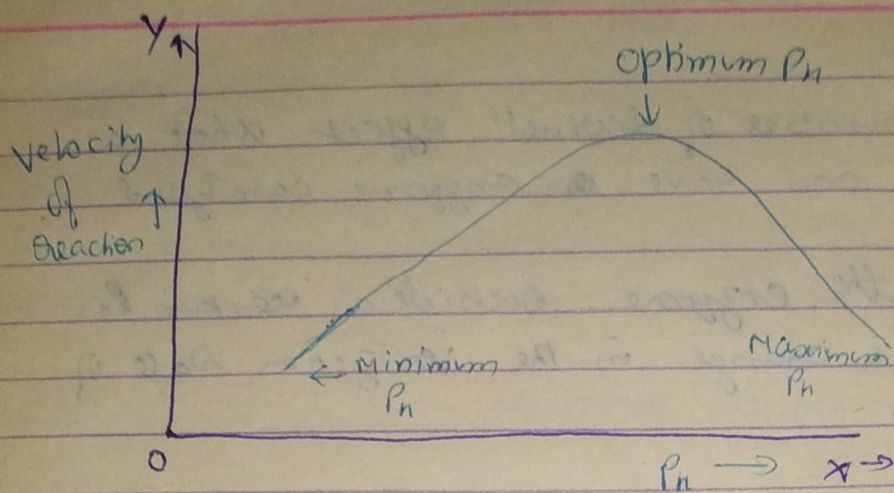 Y
Optimum PH
velocity
of
reaction
← Minimum
PH
Maximum
PH
O
PH → X →